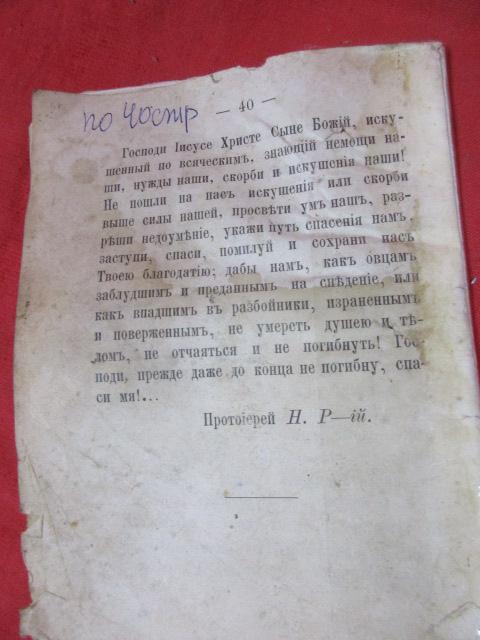 по 40стр — 40 —
Господи Іисусе Христе Сыне Божій, иску-
шенный по всяческимъ, знающій немощи на-
ши, нужды наши, скорби и искушенія наши!
Не пошли на насъ искушенія или скорби
выше силы нашей, просвѣти умъ нашъ, раз-
рѣши недоумѣніе, укажи путь спасенія намъ,
заступи, спаси, помилуй и сохрани насъ
Твоею благодатію; дабы намъ, какъ овцамъ
заблудшимъ и преданнымъ на снѣденіе, или
какъ впадшимъ въ разбойники, израненнымъ
и поверженнымъ, не умереть душею и тѣ-
ломъ, не отчаяться и не погибнуть! Гос-
поди, прежде даже до конца не погибну, спа-
си мя!...
Протоіерей Н. Р—ій.